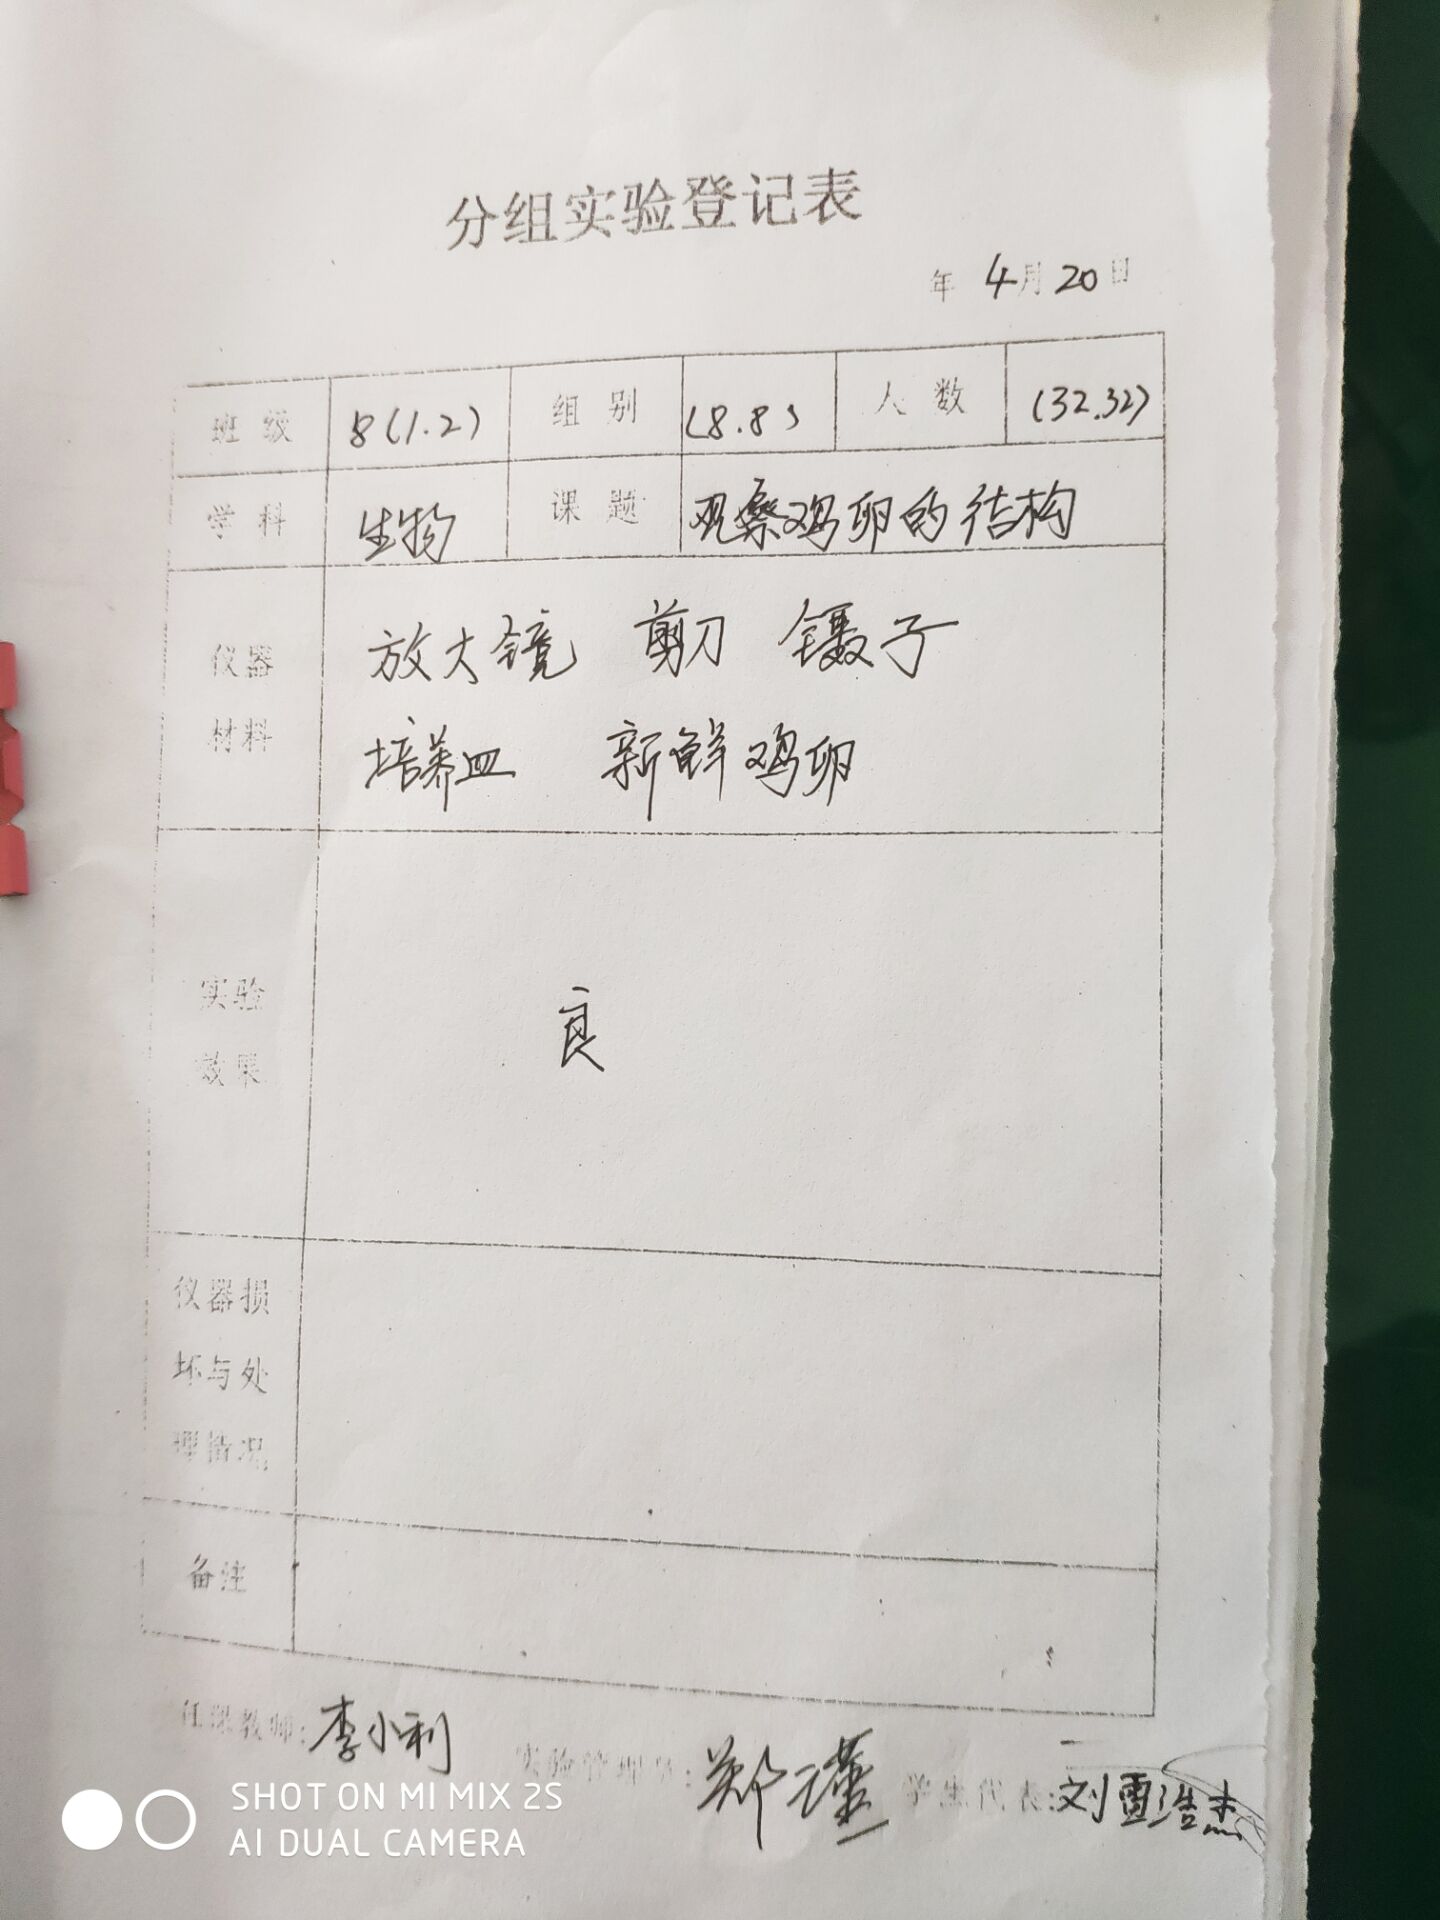 分组实验登记表
年 4月20日
班级 8(1.2) 组别 (8.8) 人数 (32.32)
学科 生物 课题 观察鸡卵的结构
仪器 放大镜 剪刀 镊子
材料 培养皿 新鲜鸡卵
实验
效果 良
仪器损
坏与处
理情况
备注
任课教师:李小利 实验管理员:郑瑾 学生代表:刘雷浩杰
SHOT ON MI MIX 2S
AI DUAL CAMERA